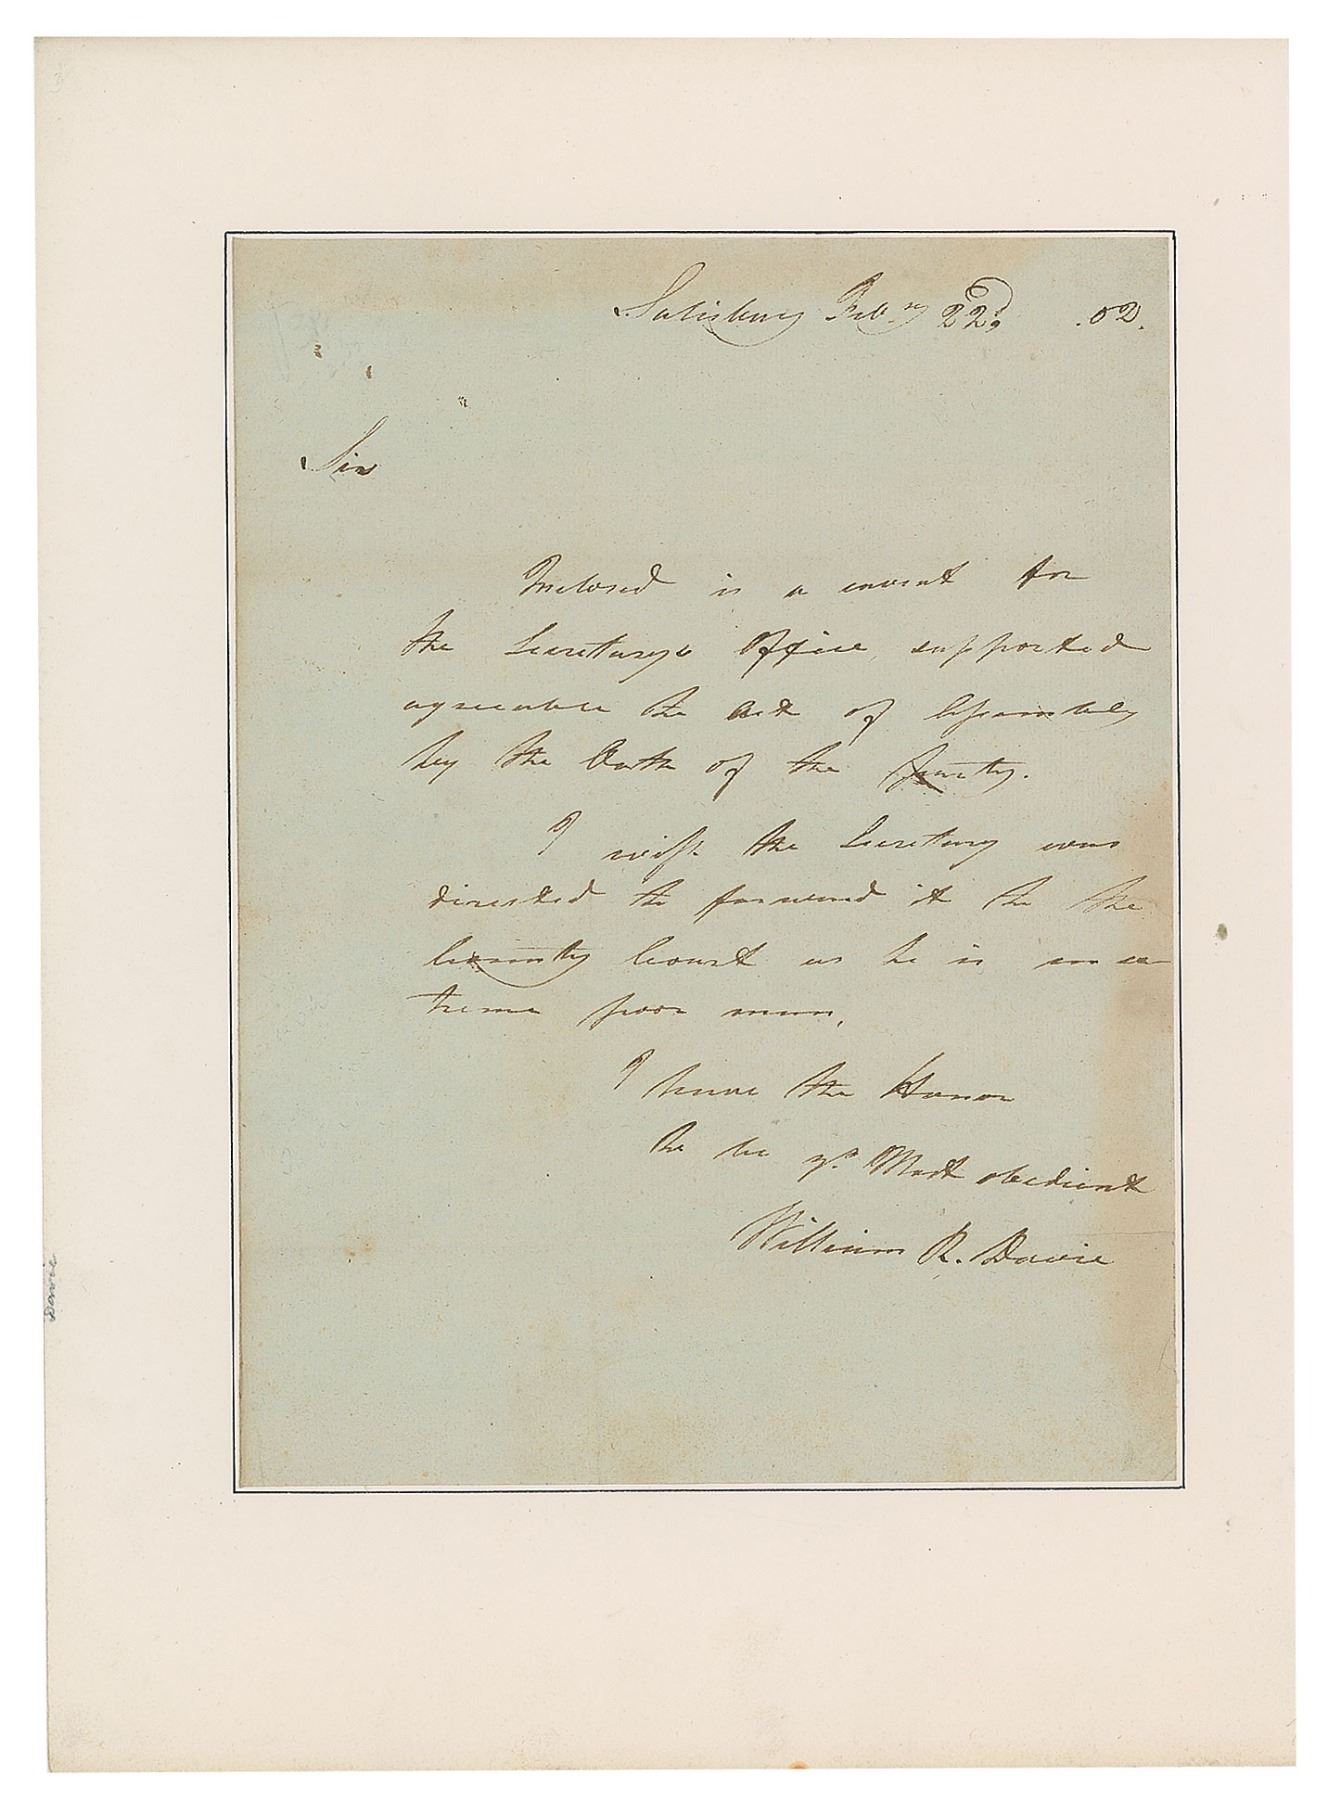 Salisbury Feb.ry 22d .02.
Sir
Inclosed is a caveat for
the Secretarys Office, supported
agreeable the Act of Assembly
by the Oath of the party.
I wish the Secretary was
directed to forward it to the
County Court as he is an ex
treme poor man,
I have the Honor
to be yr. Most obedient
William R. Davie
Davie